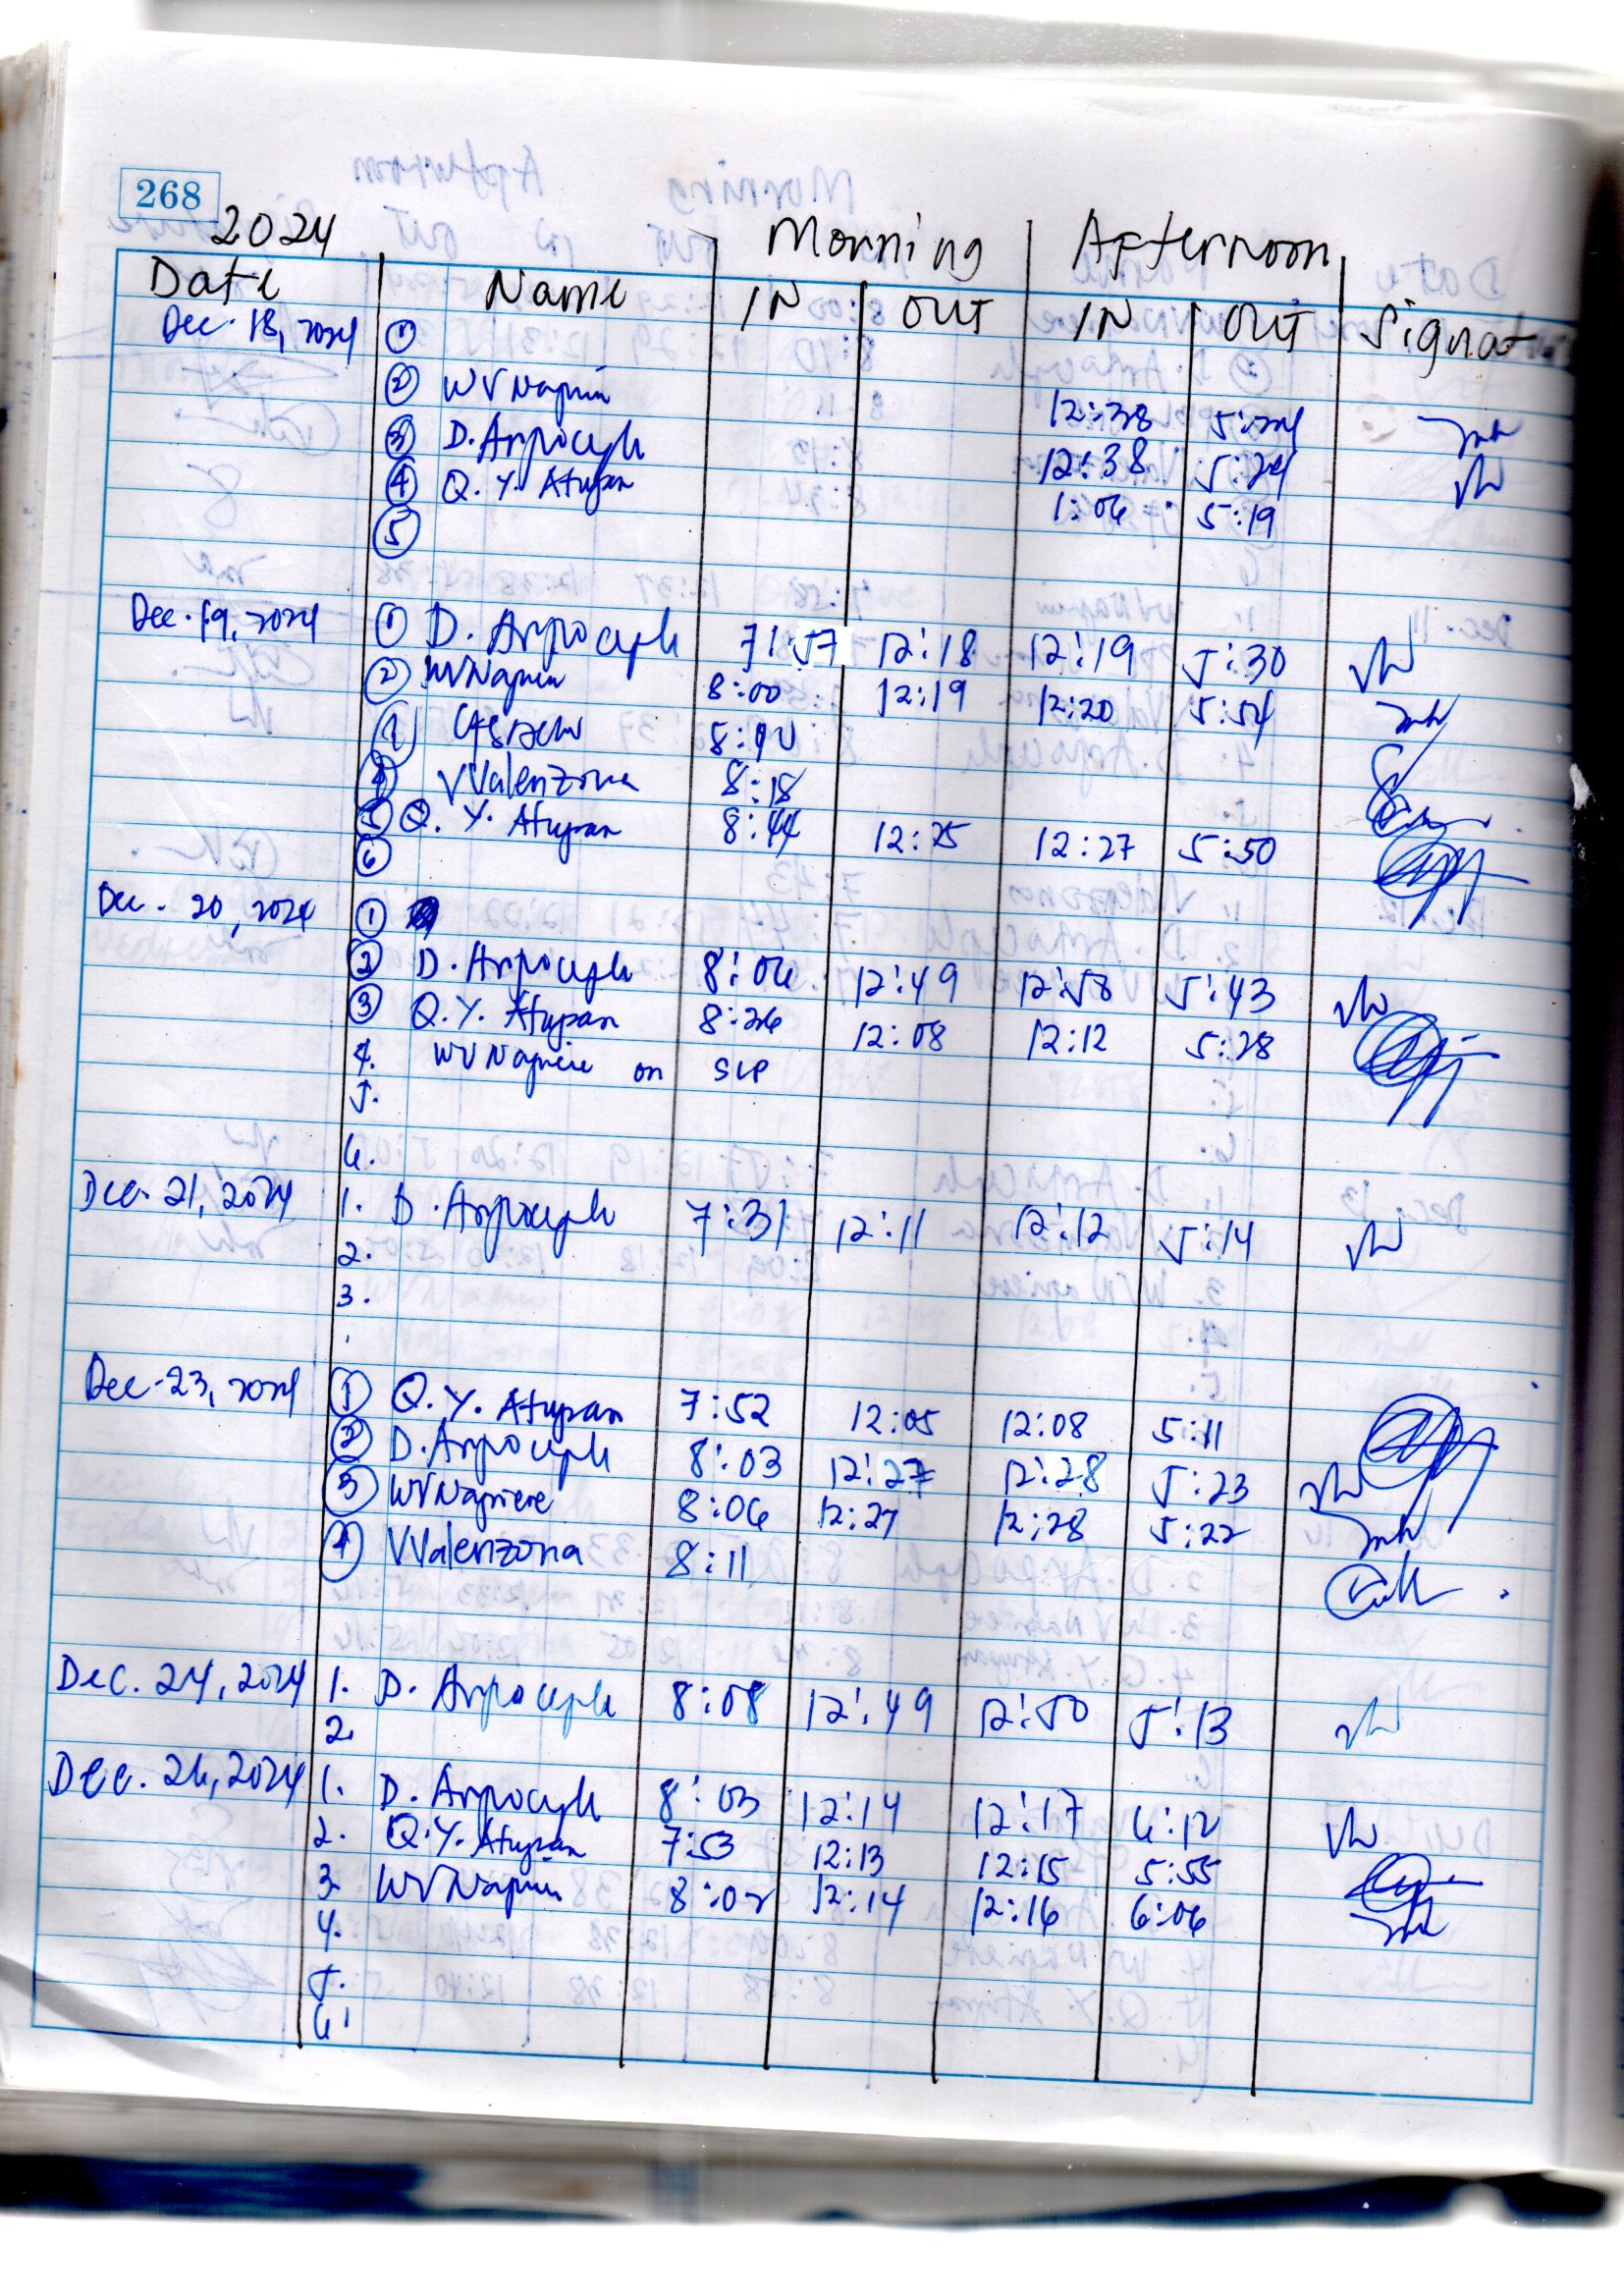 268
2024 Morning Afternoon
Date Name IN OUT IN OUT Signat
Dec. 18, 2024 ①
② WV Napiere 12:38 5:24
③ D. 12:38 5:24
④ Q. Y. Atupan 1:06 5:19
⑤
Dec. 19, 2024 ① D. 7:57 12:18 12:19 5:30
② WV Napiere 8:00 12:19 12:20 5:54
8:10
④ VValenzona 8:18
⑤ Q. Y. Atupan 8:44 12:25 12:27 5:50
⑥
Dec. 20, 2024 ①
② D. 8:06 12:49 12:58 5:43
③ Q. Y. Atupan 8:26 12:08 12:12 5:28
4. WV Napiere on SLP
5.
6.
Dec. 21, 2024 1. D. 7:31 12:11 12:12 5:14
2.
3.
Dec. 23, 2024 ① Q. Y. Atupan 7:52 12:05 12:08 5:11
② D. 8:03 12:27 12:28 5:23
③ WV Napiere 8:06 12:27 12:28 5:22
④ VValenzona 8:11
Dec. 24, 2024 1. D. 8:08 12:49 12:50 5:13
2.
Dec. 26, 2024 1. D. 8:03 12:14 12:17 6:12
2. Q. Y. Atupan 7:53 12:13 12:15 5:55
3. WV Napiere 8:02 12:14 12:16 6:06
4.
5.
6.